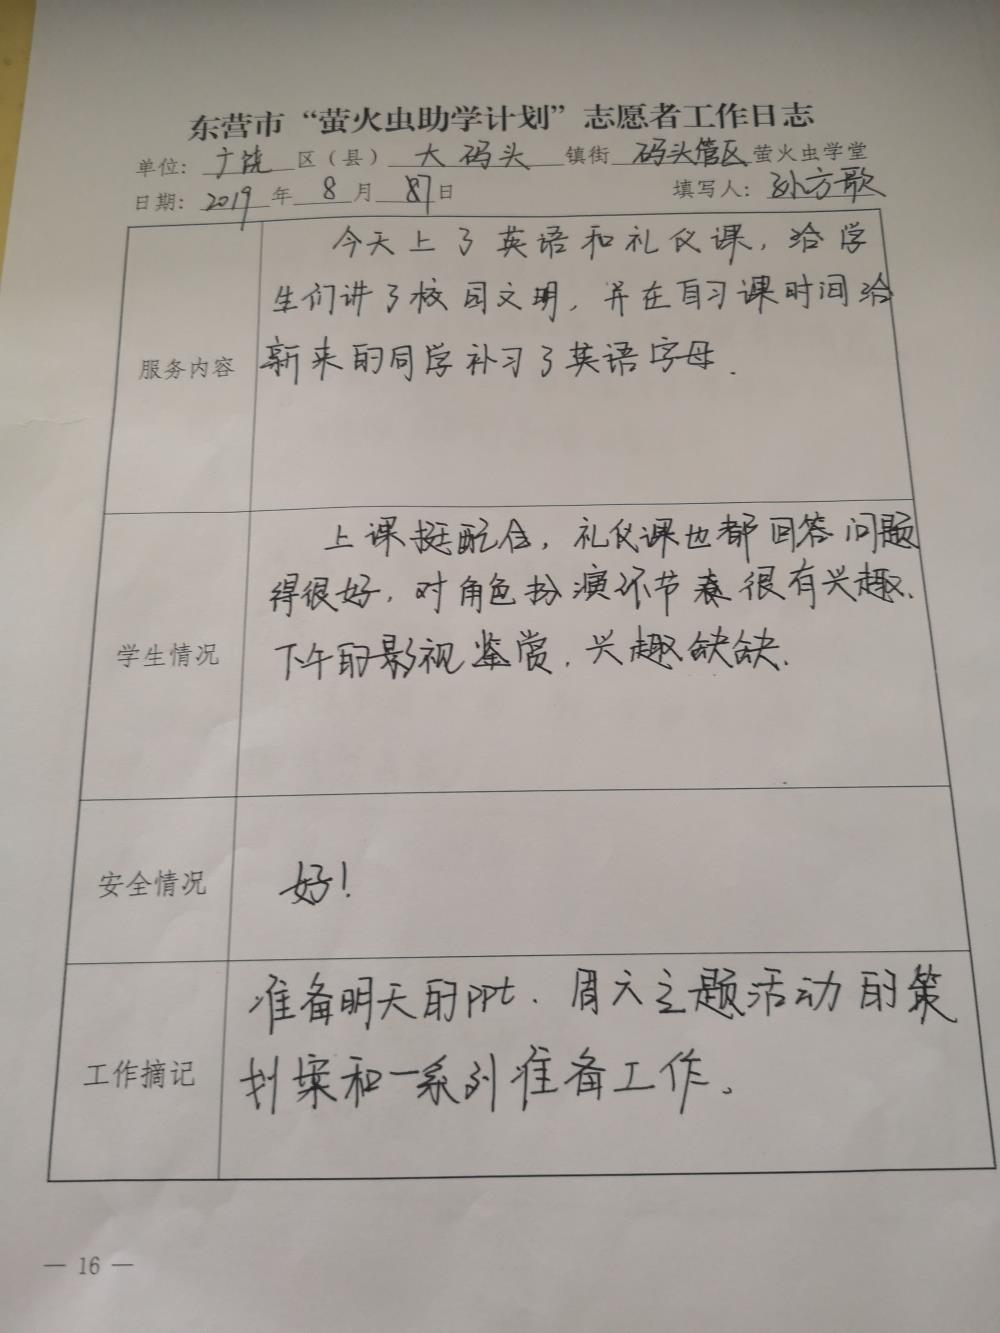 东营市“萤火虫助学计划”志愿者工作日志
单位：广饶区（县）大码头镇街码头管区萤火虫学堂
日期：2019年8月7日 填写人：孙方歌
服务内容
今天上了英语和礼仪课，给学
生们讲了校园文明，并在自习课时间给
新来的同学补习了英语字母.
学生情况
上课挺配合，礼仪课也都回答问题
得很好，对角色扮演环节很有兴趣.
下午的影视鉴赏，兴趣缺缺.
安全情况
好！
工作摘记
准备明天的PPt、周六主题活动的策
划案和一系列准备工作。
— 16 —